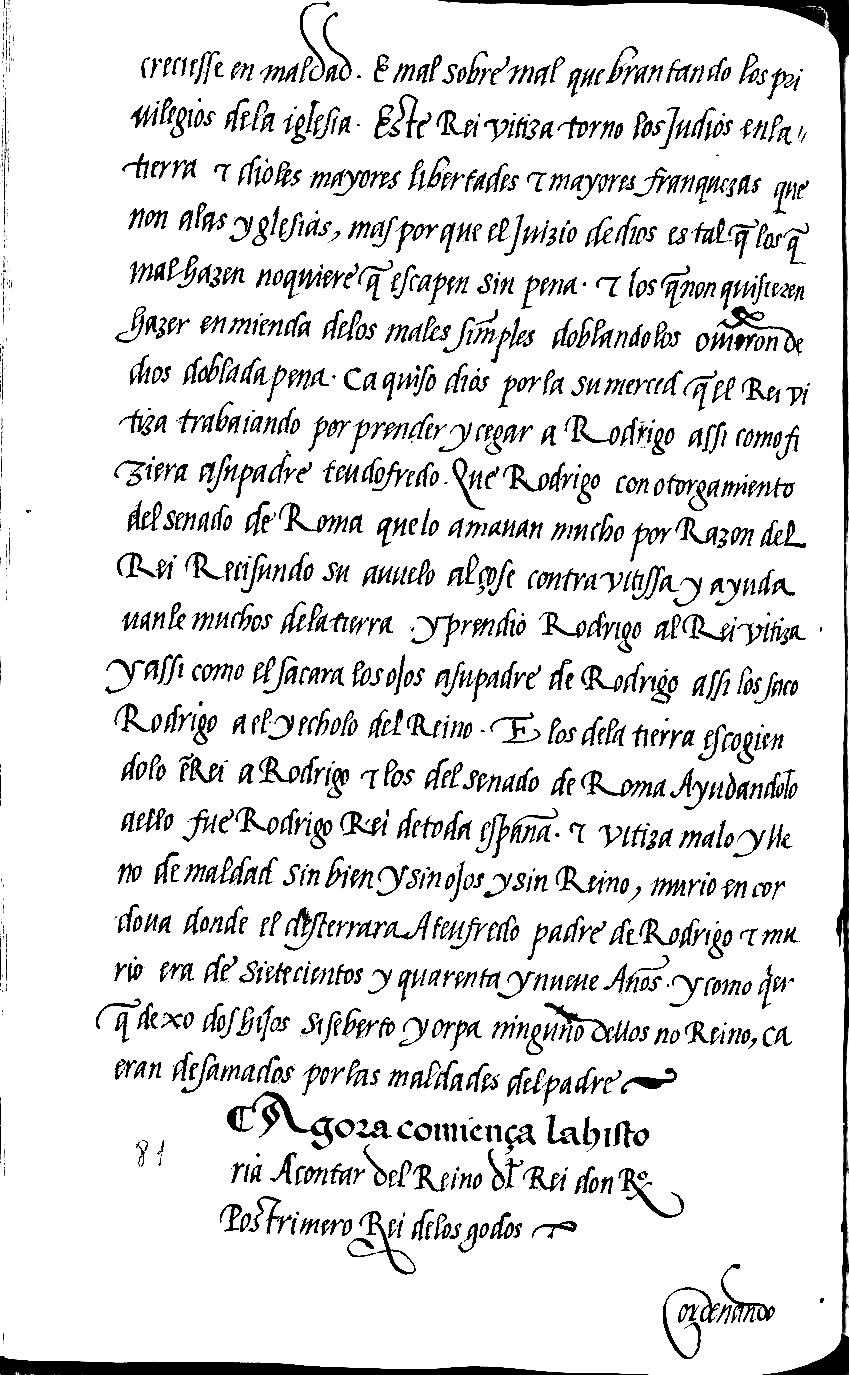 creciesse en maldad. E mal sobre mal quebrantando los pri
uilegios dela iglesia. Este Rei vitiza torno los Judios enla〃
tierra τ dioles mayores libertades τ mayores franquezas que
non alas yglesias, mas por que el Juizio de dios es tal q̃ los q̃
mal hazen no quiere q̃ escapen sin pena. τ los q̃ non quisieren
hazer enmienda delos males simples doblandolos ouieron de
dios doblada pena. Ca quiso dios por la su merced q̃ el Rei vi
tiza trabaiando por prender y cegar a Rodrigo assi como fi
ziera asu padre teudofredo. Que Rodrigo con otorgamiento
del senado de Roma que lo amauan mucho por Razon del
Rei Recisundo su auuelo alçose contra vitissa y ayuda
uanle muchos dela tierra . y prendio Rodrigo al Rei vitiza .
y assi como el sacara los ojos asu padre de Rodrigo assi los saco
Rodrigo a el y echolo del Reino. E los dela tierra escogien
dolo ẽ Rei a Rodrigo τ los del senado de Roma Ayudandolo
aello fue Rodrigo Rei de toda españa. τ vitiza malo y lle
no de maldad sin bien y sin ojos y sin Reino, murio en cor
doua donde el desterrara A teufredo padre de Rodrigo τ mu
rio era de sietecientos y quarenta y nueue Años. y como q̃er
q̃ dexo dos hijos siseberto y orpa ninguno dellos no Reino, ca
eran desamados por las maldades del padre
¶ Agora comiença la histo
81
ria Acontar del Reino dl̃ Rei don Rº.
Postrimero Rei delos godos
ordenando